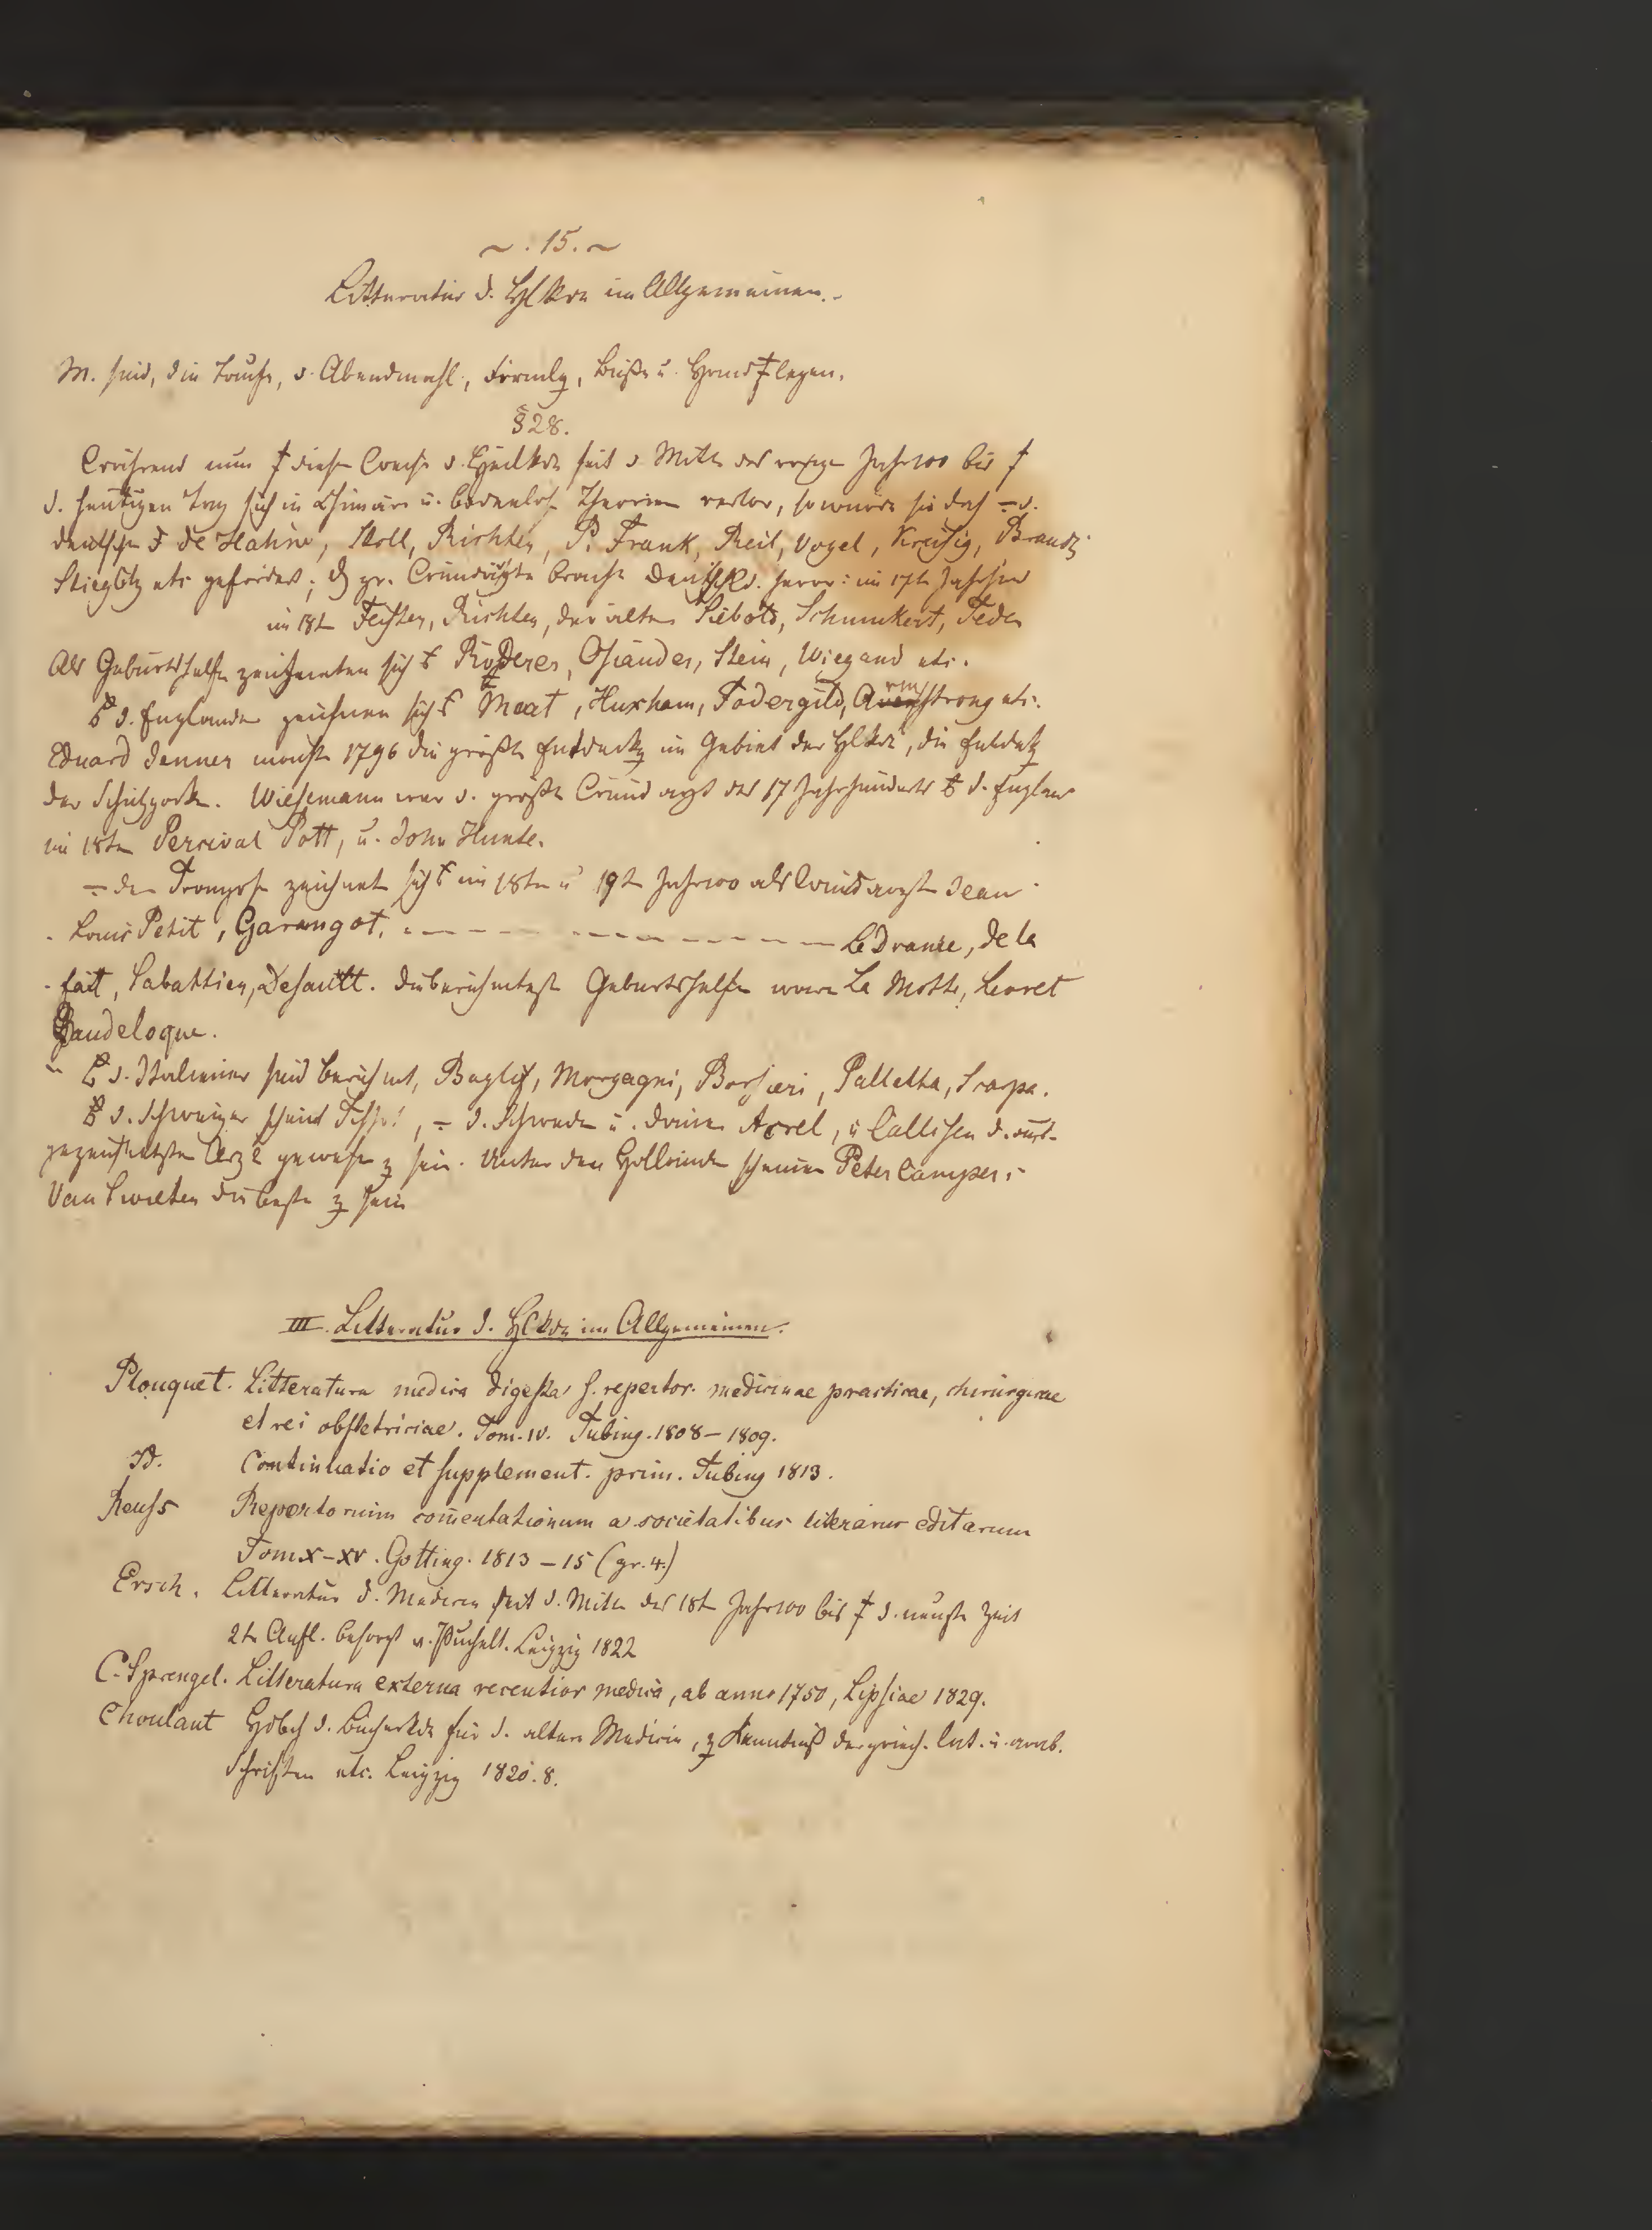 ~ . 15. ~
Litteratur d. Hlkde im Allgemeinen.
M. sind, die Taufe, d. Abendmahl, Firmlg, Buße u. Hand legen.
§28.
Während nun diese d. Heilkde seit d. Mitte des vorigen Jahr100 bis
d. heutigen Tag sich in Chimäre u. bodenlose Theorien verlor, so wurde sie doch d.
deutschen de Hahne, Stoll, Richter, P. Frank, Reil, Vogel, Kreisig, Brandis
Stieglitz etc gefördert; gr. Wundärzte brachte Deutschld. hervor: im 17t Jahrhd
im 18t Richter, der alte Siebold, Schmukert, Teden
Als Geburtshelfer zeichneten sich Röderer, Osiander, Stein, Wiegand etc.
d. Engländer zeichnen sich Maat, Huxham, Fodergild, Armstrong etc.
Eduard Jenner machte 1796 die größte Entdeckg im Gebiet der Hlkde, die Entdekg
der Schutzpocke. Wiesemann war d. größte Wundarzt des 17 Jahrhunderts d. Englän
im 18ten Percival Pott, u. John Hunte.
den Franzosen zeichnet sich im 18ten u 19t Jahr100 als Wundarzt Jean
Louis Petit, Garangot. - - - - - - - - - - Le Dranie, de la
fait, Sabattier, Desault. Die berühmtesten Geburtshelfer waren La Motte, Levret
Baudeloque.
d. Italiener sind berühmt, Bagliv, Morgagni, Borsieri, Palletta, Scarpa.
d. Schweizer scheint Tissot, d. Schweden u. Dänen Acrel, u Callisen d. aus-
gezeichnetsten Ärzte gewesen z sein. Unter den Holländern scheinen Peter Camper,
Van Swieten die beste z sein
III. Litteratur d. Hlkde im Allgemeinen.
Plouquet. Litteratura medica digesta s. repertor. medicinae practicae, chirurgicae
et rei obstetriciae. Tom. IV. Tubing. 1808 – 1809.
Id. Continuatio et supplement. prim. Tubing 1813.
Reuss Repertorium com̄entationum a societatibus literariis editarum
Tom X – XV. Gotting. 1813 – 15 (gr. 4.)
Ersch. Litteratur d. Medicin seit d. Mitte des 18t Jahr100 bis d. neuste Zeit
2te Aufl. besorgt v. Puchelt. Leipzig 1822
C. Sprengel. Litteratura externa recentior medica, ab anno 1750, Lipsiae 1829.
Choulant Hdbch d. Bücherkde für d. ältere Medicin, z Kenntniß der griech. lat. u. arab.
Schriften etc. Leipzig 1820. 8.